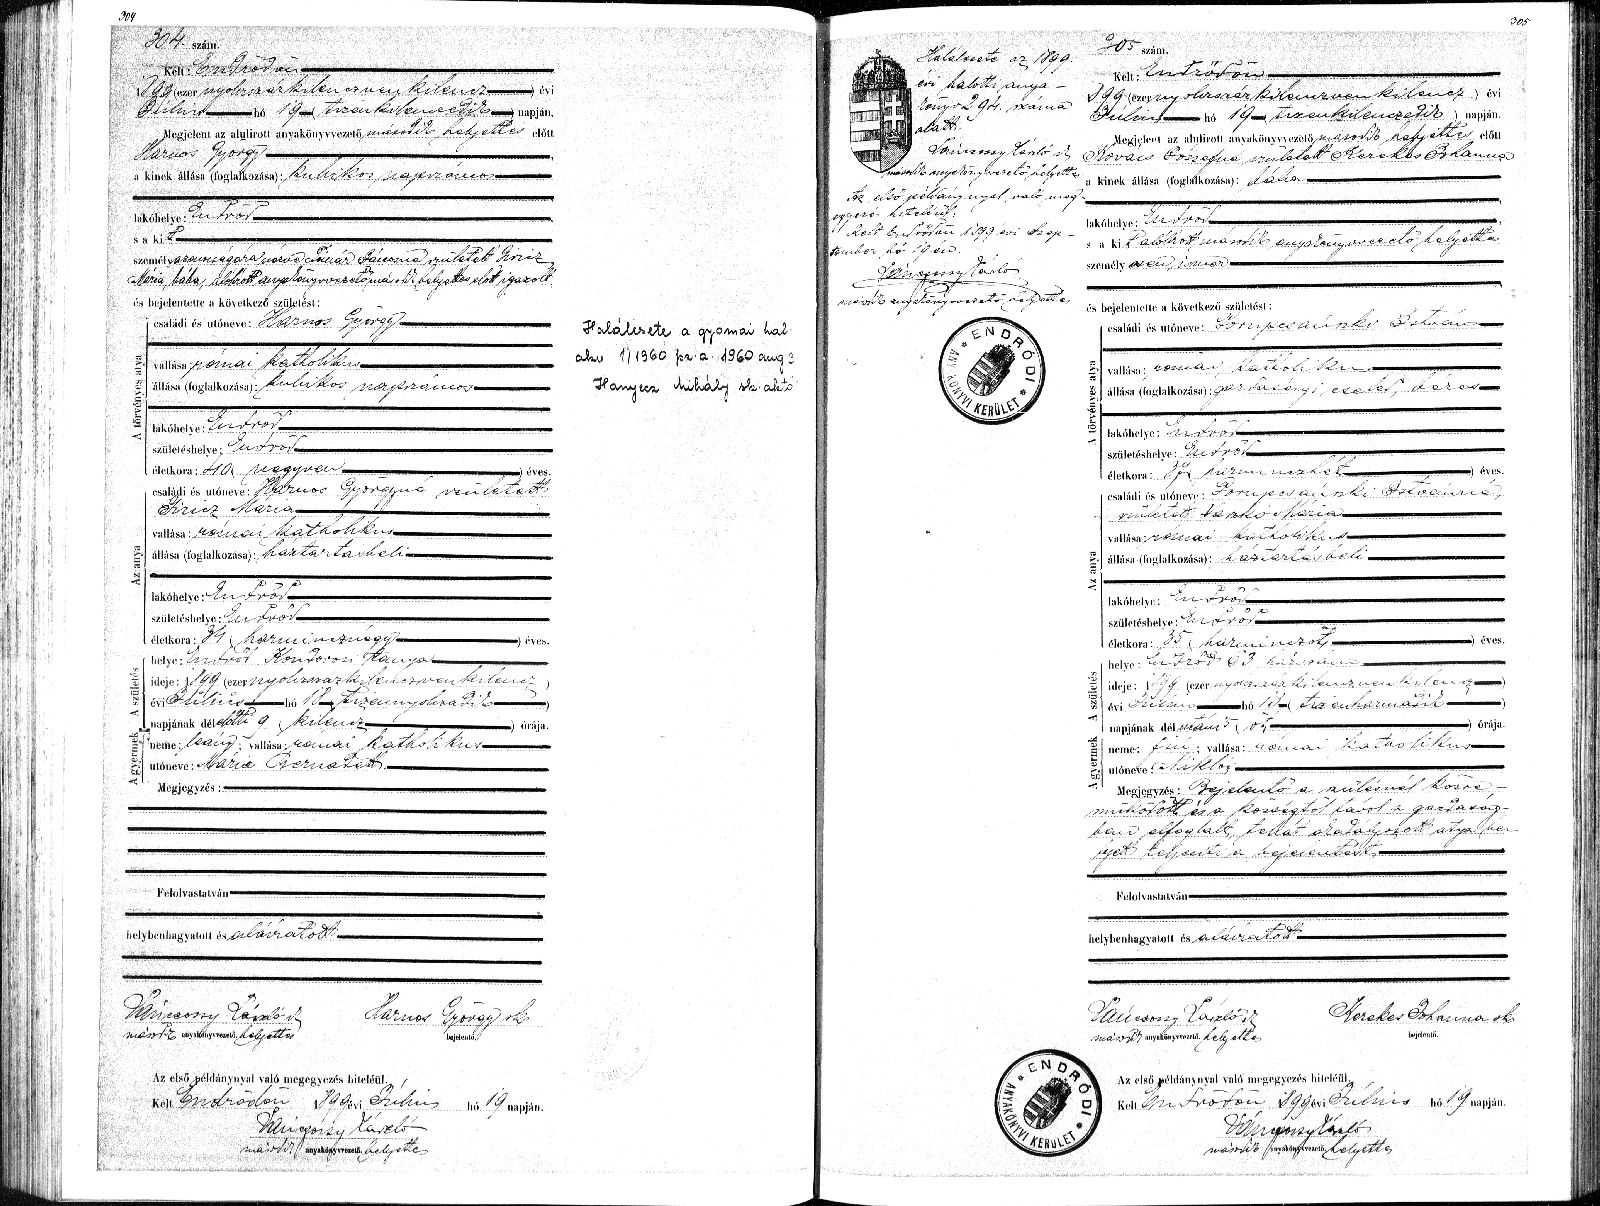 304
304 szám.
Kelt: Endrődön
1899 (ezer nyolczszázkilenczvenkilencz) évi
Julius hó 19 (tizenkilenczedik) napján.
Megjelent az alulirott anyakönyvvezető második helyettes előtt
Harnos György
a kinek állása (foglalkozása): kubikos, napszámos
lakóhelye: Endrőd
s a kit
személyazonosságára nézve Jánosné született Giricz
Mária, bába, alulirott anyakönyvvezető második helyettes előtt igazolt
és bejelentette a következő születést:
A törvényes atya
családi és utóneve: Harnos György
vallása: római katholikus
állása (foglalkozása): kubikos, napszámos
lakóhelye: Endrőd
születéshelye: Endrőd
életkora: 40 (negyven) éves.
Az anya
családi és utóneve: Harnos Györgyné született
Giricz Mária
vallása: római katholikus
állása (foglalkozása): háztartásbeli
lakóhelye: Endrőd
születéshelye: Endrőd
életkora: 34 (harmincznégy) éves.
A születés
helye: Endrőd Kondorosi tanya
ideje: 1899 (ezer nyolczszázkilenczvenkilencz)
évi Julius hó 18 (tizennyolczadik)
napjának délelőtti 9 (kilencz) órája.
A gyermek
neme: leány; vallása: római katholikus
utóneve: Mária Bernadett
Megjegyzés:
Felolvastatván
helybenhagyatott és aláiratott
Vánccsony László
második anyakönyvvezető, helyettes
Harnos György sk
bejelentő.
Az első példánynyal való megegyezés hiteléül.
Kelt Endrődön 1899 évi Július hó 19 napján.
Vánccsony László
második anyakönyvvezető, helyettes
Halálesete a gyomai hal.
akv 1960 aug 3
Hanyecz Mihály sk. akv
305
Halálesete az 1899.
évi halotti anya-
könyv 294. száma
alatt.
Vánccsony László
második anyakönyvvezető, helyettes
Az első példánynyal való meg-
egyezés hiteléül.
Kelt Endrődön 1899 évi Szep-
tember hó 19-én.
Vánccsony László
második anyakönyvvezető, helyettes
ENDRŐDI
ANYAKÖNYVI KERÜLET
305 szám.
Kelt: Endrődön
1899 (ezer nyolczszázkilenczvenkilencz) évi
Julius hó 19 (tizenkilenczedik) napján.
Megjelent az alulirott anyakönyvvezető második helyettes előtt
Kovács Józsefné született Kerekes Johanna
a kinek állása (foglalkozása): bába
lakóhelye: Endrőd
s a kit alulirott második anyakönyvvezető helyettes
személyesen ismer
és bejelentette a következő születést:
A törvényes atya
családi és utóneve: István
vallása: római katholikus
állása (foglalkozása): gazdasági cseléd, béres
lakóhelye: Endrőd
születéshelye: Endrőd
életkora: 37 (harminczhét) éves.
Az anya
családi és utóneve: Istvánné
született Mária
vallása: római katholikus
állása (foglalkozása): háztartásbeli
lakóhelye: Endrőd
születéshelye: Endrőd
életkora: 35 (harminczöt) éves.
A születés
helye: Endrőd 63 házszám
ideje: 1899 (ezer nyolczszázkilenczvenkilencz)
évi Julius hó 13 (tizenharmadik)
napjának délután öt órája.
A gyermek
neme: fiú; vallása: római katholikus
utóneve: Miklós
Megjegyzés: Bejelentő a szülésnél közre-
működött és a községtől távol a gazdaság-
ban elfoglalt, tehát akadályozott atya he-
lyett teljesíti a bejelentést.
Felolvastatván
helybenhagyatott és aláiratott
Vánccsony László
második anyakönyvvezető, helyettes
Kerekes Johanna sk
bejelentő.
Az első példánynyal való megegyezés hiteléül.
Kelt Endrődön 1899 évi Július hó 19 napján.
Vánccsony László
második anyakönyvvezető, helyettes
ENDRŐDI
ANYAKÖNYVI KERÜLET